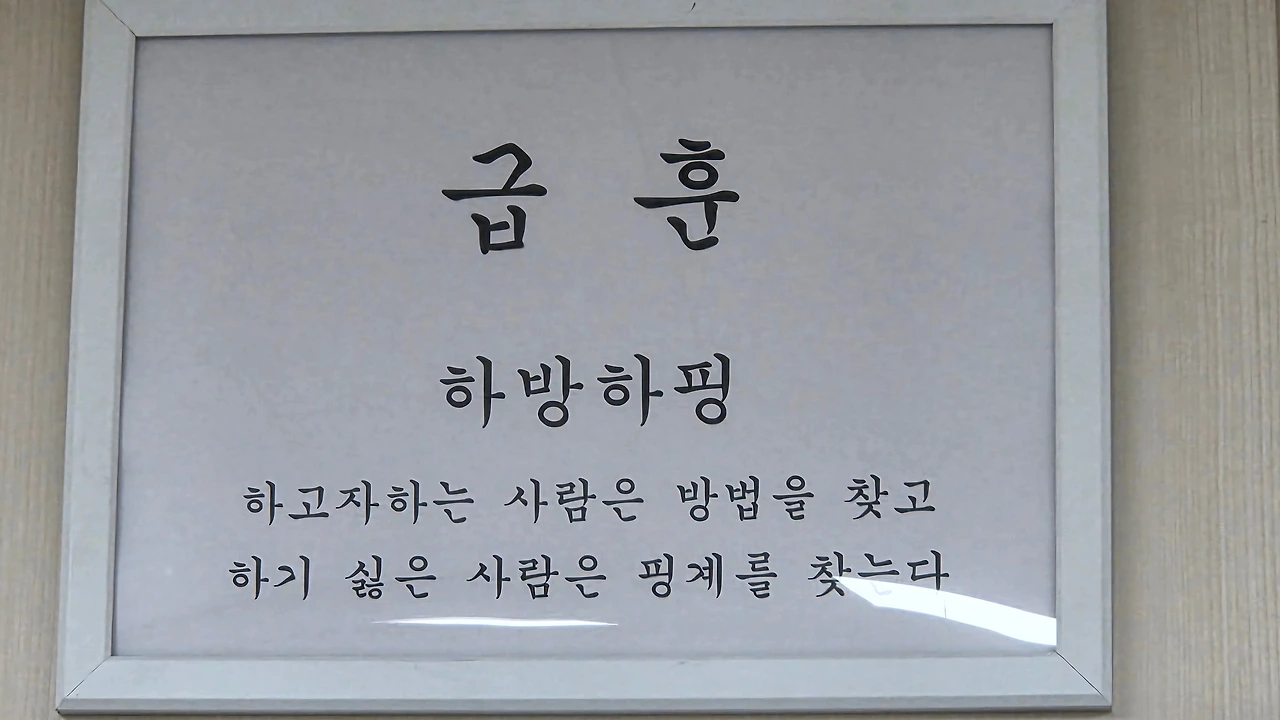 급 훈
하방하핑
하고자하는 사람은 방법을 찾고
하기 싫은 사람은 핑계를 찾는다